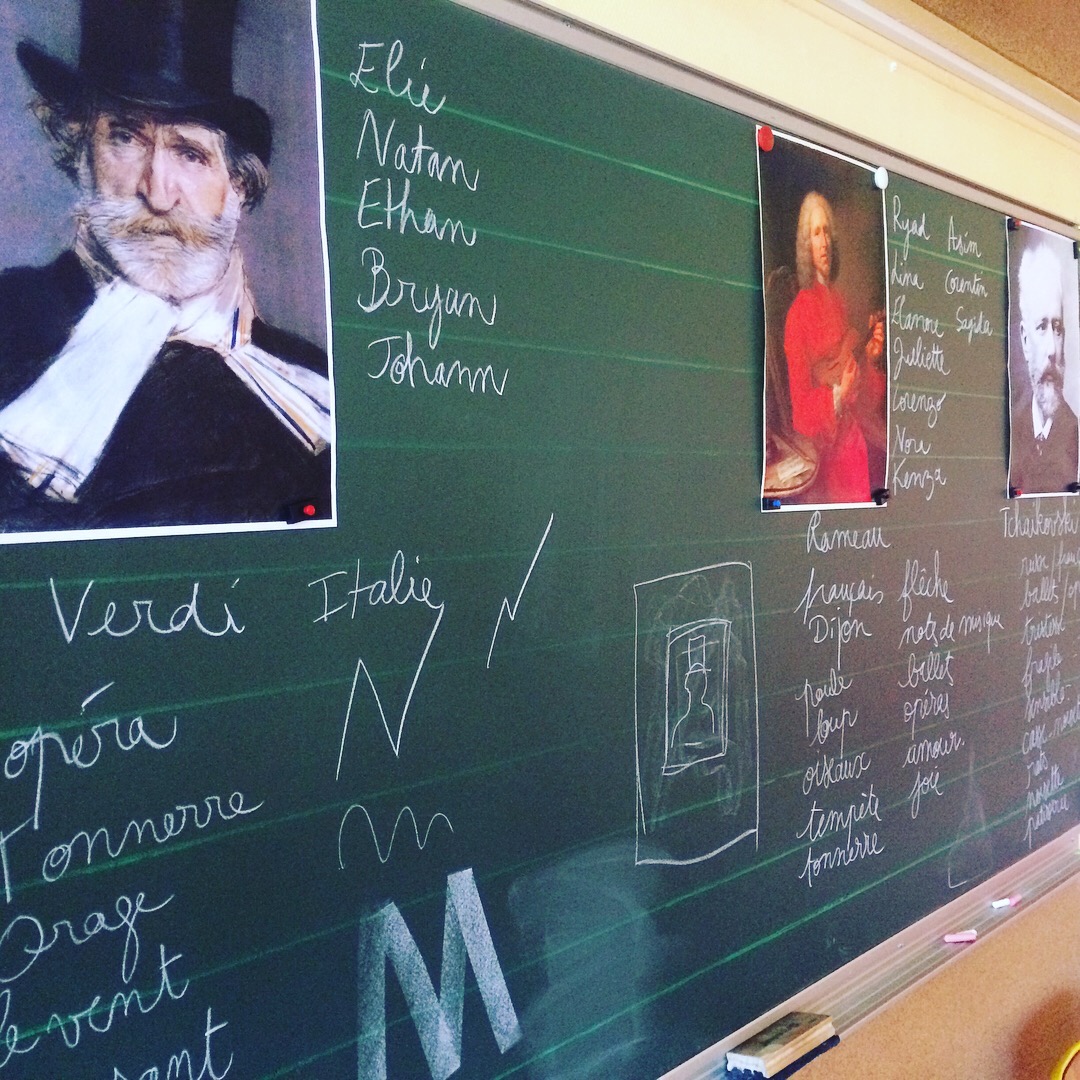 Elie
Natan
Ethan
Bryan
Johann
Verdi Italie
opéra
Tonnerre
Orage
le vent
M
Ryad Asim
Lina Corentin
Juliette
Lorenzo
Nora
Kenza
Rameau
français flêche
Dijon notes de musique
poule ballet
loup opéras
oiseaux amour.
tempête joie
tonnerre
Tchaikovski
russe
ballet
tristesse
fragile
sensible
rats
noisette